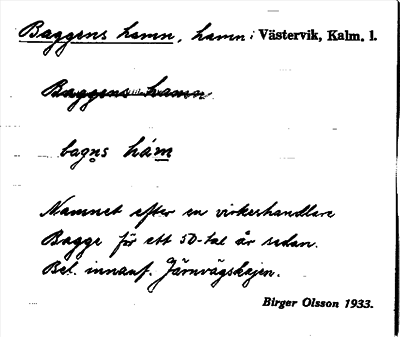 Baggens hamn, hamn i Västervik, Kalm. l.
Baggens hamn
bagns håm
Namnet efter en virkeshandlare
Bagge för ett 50-tal år sedan.
Bel. innanf. Järnvägskajen.
Birger Olsson 1933.